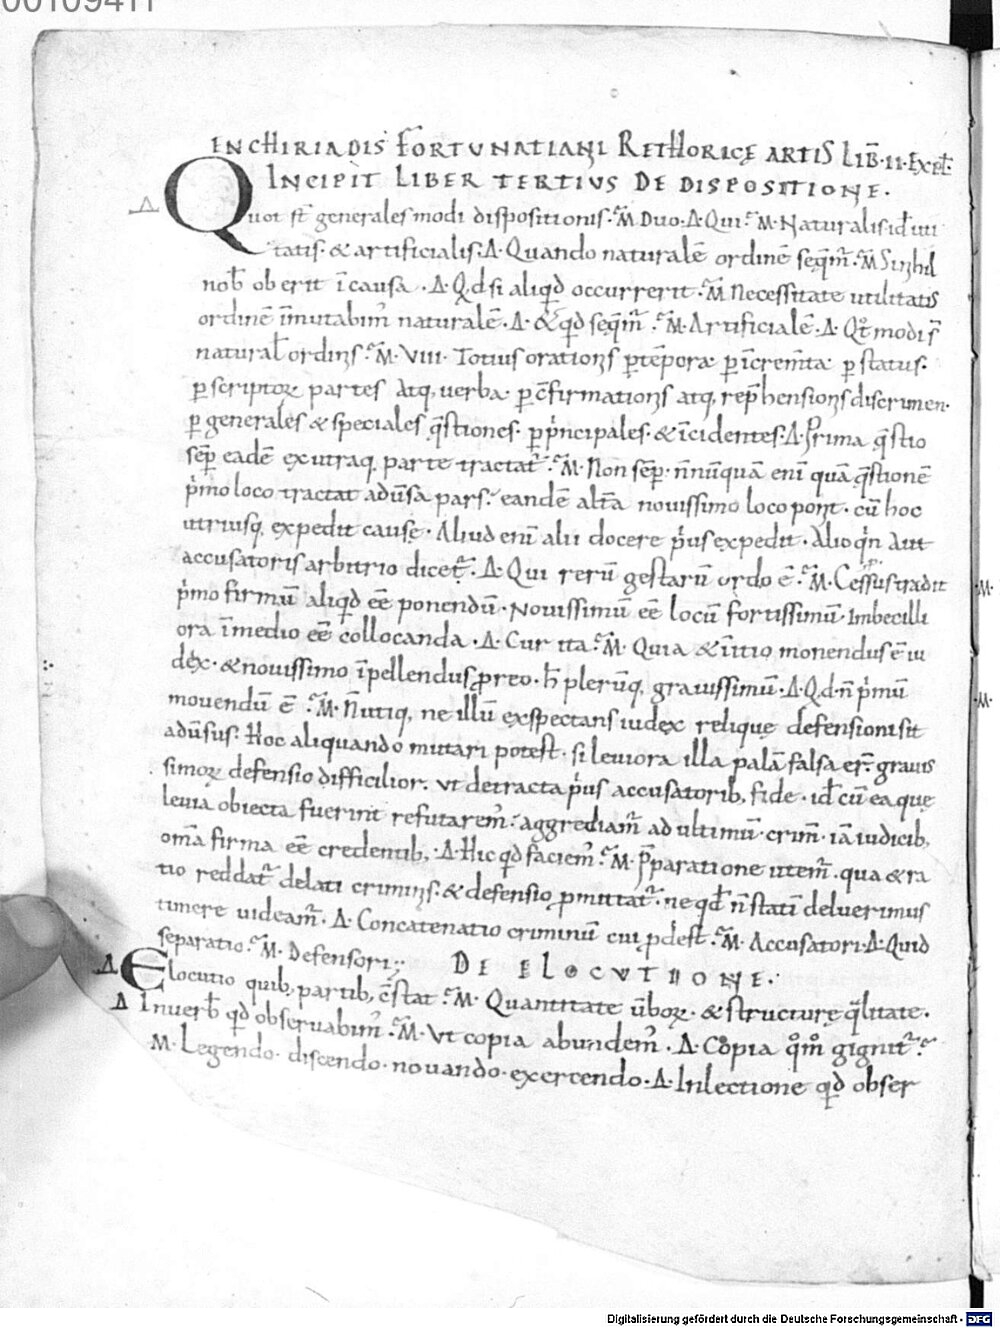 00109411
ENCHIRIADIS FORTUNATIANI RETHORICĘ ARTIS LIB̄·II·EXPL̄
INCIPIT LIBER TERTIUS DE DISPOSITIONE.
Δ Quot st̄ generales modi dispositionis·M̃·Duo·Δ·Qui·M̃·Naturalis·id̄ uti
tatis·& artificialis·Δ·Quando naturalē ordinē seq̄m̄·M̃ Sinihil
nob̄ oberit ī causa·Δ·Qđ si aliqđ occurrerit·M̃ Necessitate utilitatis
ordinē īmutabim̄ naturalē·Δ·& qđ seq̄m̄·M̃·Artificialē·Δ·Qt̄ modis̄
natural̄ ordinis·M̃·VIII·Totius orationis ꝑ tēpora ꝑ īcrem̄ta ꝑ status·
ꝑ scriptoꝝ partes atq; uerba ꝑ c̄firmationis atq; rep̄hensionis discrimen·
ꝑ generales & speciales q̄stiones·ꝑ p̄ncipales·& īcidentes·Δ·Prima q̄stio
sēp eadē ex utraq; parte tractat̄·M̃·Non sēp·n̄nūquā eni quā q̄stionē
p̄mo loco tractat adūsa pars·eandē alt̄a nouissimo loco ponit·cū hoc
utriusq; expedit causę·Aliud enī alii docere p̄us expedit·Alioq̄n aut
accusatoris arbitrio dicet̄·Δ·Qui rerū gestarū ordo ē·M̃·Cessus tradit
p̄mo firmū aliqđ eē ponendū·Nouissimū eē locū fortissimū·Imbecilli
ora ī medio eē collocanda·Δ·Cur ita·M̃·Quia & īitio monendus ē iu
dex·& nouissimo īpellendus preo·h̄ plerūq; grauissimū·Δ·Qđ n̄ p̄mū
mouendū ē·M̃·N̄ utiq; ne illū exspectans iudex relique defensioni sit
adūsus·Hoc aliquando mutari potest·si leuiora illa palā falsa er̄·grauis
simoꝝ defensio difficilior·ut detracta p̄us accusatorib; fide·id̄ cū ea quę
leuia obiecta fuerint refutarem̄·aggrediam̄ ad ultimū crim̄·iā iudicib;
om̄a firma eē credentib;·Δ·Hic qđ faciem̄·M̃·P̄paratione utem̄·qua & ra
tio reddat̄ delati criminis·& defensio ꝓmittat̄·ne qđ n̄ statī deluerimus
timere uideam̄·Δ·Concatenatio criminū cui ꝓdest·M̃·Accusatori·Δ·Quid
separatio·M̃·Defensori;
DE ELOCUTIONE:
Δ Elocutio quib; partib; c̄stat·M̃·Quantitate ūboꝝ·& structurę q̄litate·
Δ In uerb̄ qđ obseruabim̄·M̃·Ut copia abundem̄·Δ·Copia qm̄ gignit̄·
M·Legendo·discendo·nouando·exercendo·Δ·In lectione qđ obser
·M·
·M·
Digitalisierung gefördert durch die Deutsche Forschungsgemeinschaft - DFG